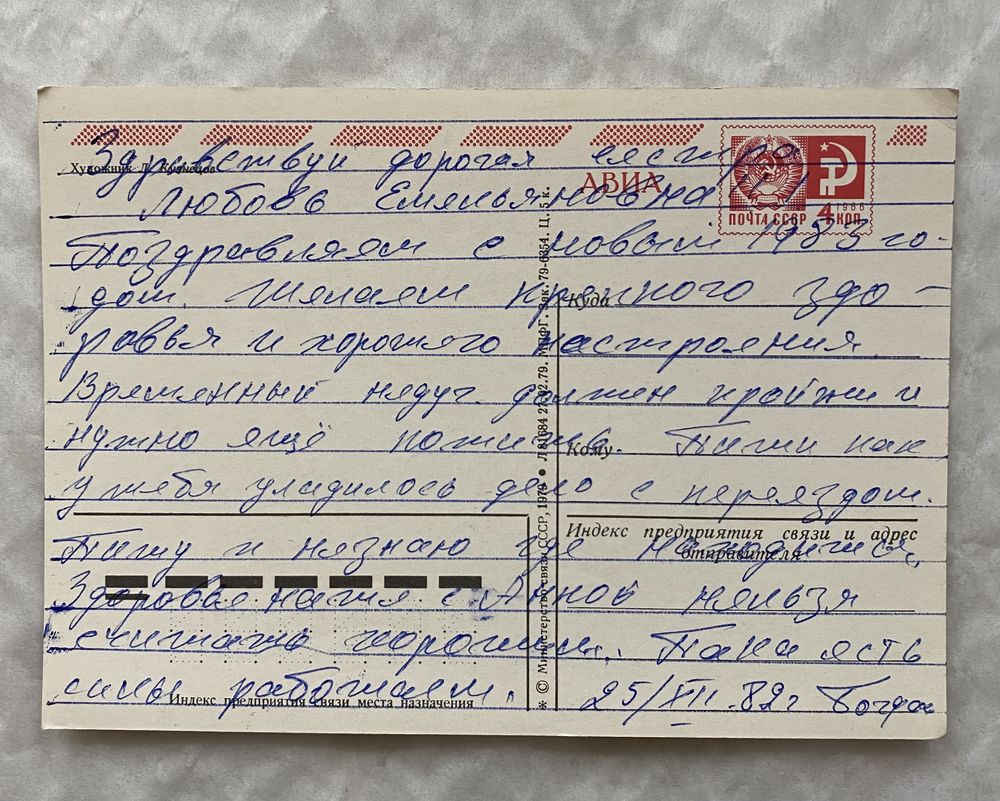 Здравствуй дорогая сестра
Художник Л. Кузнецов
АВИА
Любовь Емельяновна
ПОЧТА СССР 4 КОП.
1966
Поздравляем с новым 1983 го-
дом. Желаем крепкого здо-
Куда
ровья и хорошего настроения.
Временный недуг должен пройти и
нужно ещё пожить. Пиши как
Кому
у тебя уладилось дело с переездом.
Индекс предприятия связи и адрес
отправителя
Пишу и незнаю где находишся,
Здоровье наше с Анной нельзя
считать хорошим. Пака есть
силы работаем.
25/XII.82г Богдан
Индекс предприятия связи места назначения
* © Министерство связи СССР, 1979 ● Л 81684 27.02.79. МПФГ. Зак. 79-6354. Ц. 5 к.